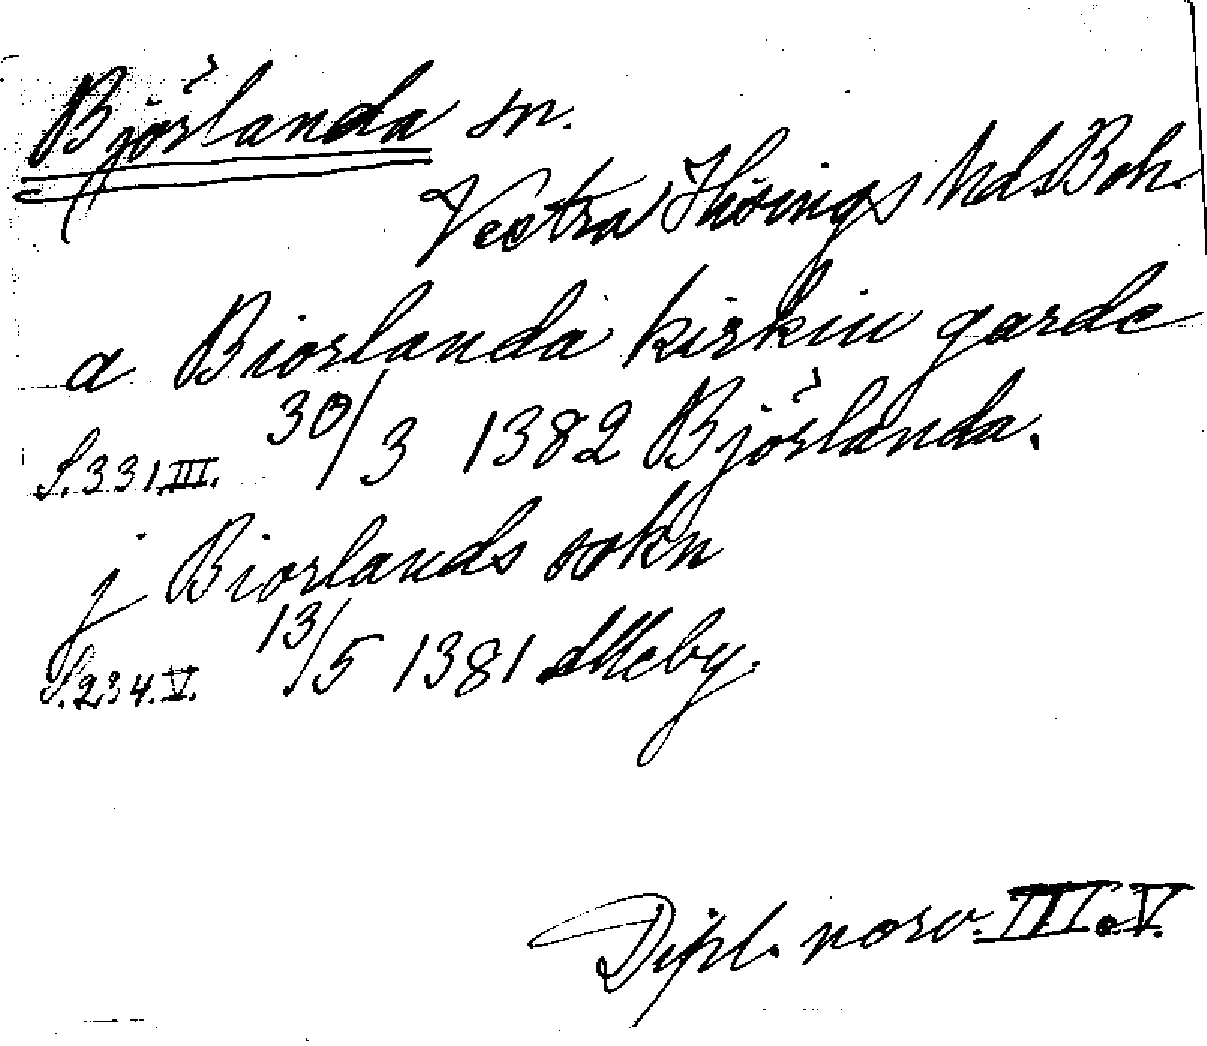 Björlanda sn.
Vestra Hisings hd. Boh.
a Biorlanda kirkiu garde
S. 331. III. 30/3 1382 Björlanda.
j Biorlands sokn
S. 234. V. 13/5 1381
Dipl. norv. III. V.